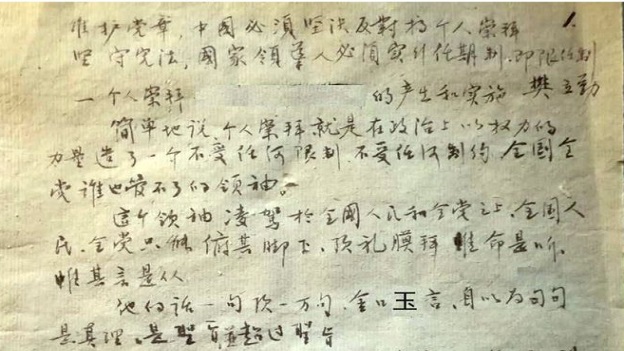 维护党章,中國必須坚决反對搞个人崇拜
坚守宪法,國家领导人必須实行任期制、即限任制
一 个人崇拜 的产生和实施 樊立勤
简单地说,个人崇拜就是在政治上以权力的
力量造了一个不受任何限制、不受任何制约、全国全
党谁也管不了的领袖。
这个领袖凌駕於全國人民和全党之上、全国人
民、全党只能俯其脚下、顶礼膜拜 惟命是听
惟其言是从
他的话一句顶一万句,金口玉言、自以为句句
是真理、是聖旨並超过聖旨